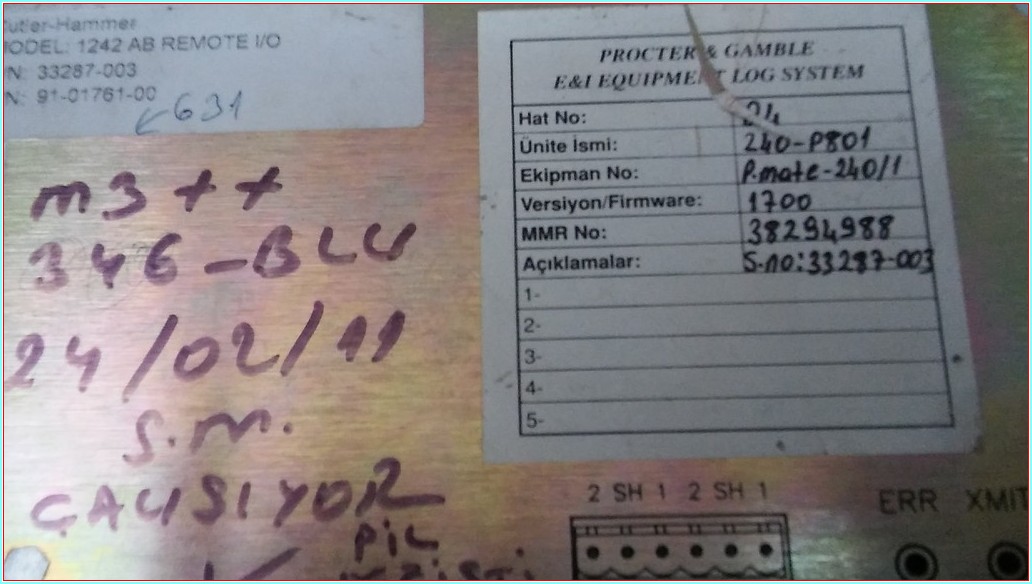 Cutler-Hammer
MODEL: 1242 AB REMOTE I/O
N: 33287-003
N: 91-01761-00
631
m3 + +
346-BLU
24/02/11
S.M.
ÇALISIYOR
PİL
PROCTER & GAMBLE
E&I EQUIPMENT LOG SYSTEM
Hat No: 24
Ünite İsmi: 240-P801
Ekipman No: P.mate-240/1
Versiyon/Firmware: 1700
MMR No: 38294988
Açıklamalar: S-no:33287-003
1-
2-
3-
4-
5-
2 SH 1 2 SH 1
ERR XMIT